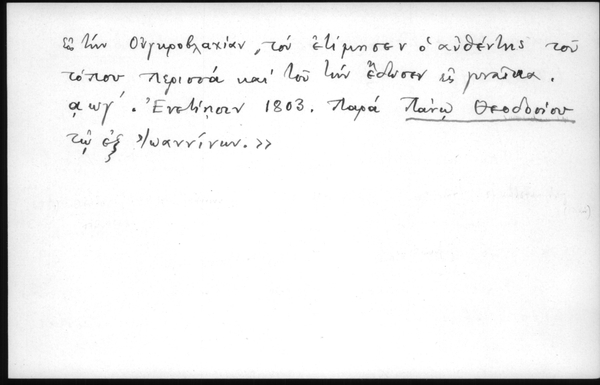 εἰς τὴν Οὐγκροβλαχίαν, τὸν ἐτίμησεν ὁ αὐθέντης τοῦ
τόπου περισσὰ καὶ τοῦ τὴν ἔδωσεν εἰς γυναῖκα.
͵αωγ΄. Ἐνετίῃσιν 1803. Παρὰ Πάνῳ Θεοδοσίου
τῷ ἐξ Ἰωαννίνων.»